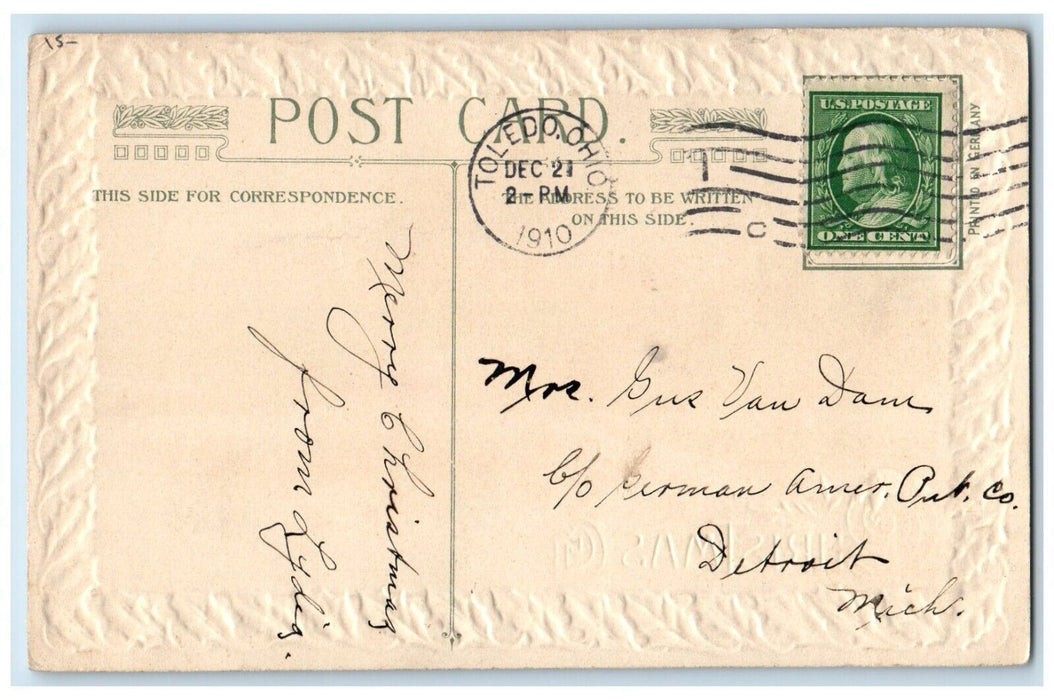 15-
POST CARD.
THIS SIDE FOR CORRESPONDENCE.
THE ADDRESS TO BE WRITTEN
ON THIS SIDE.
TOLEDO, OHIO
DEC 21
2-PM
1910
U.S. POSTAGE
ONE CENT
PRINTED IN GERMANY
Merry Christmas
from Lydia.
Mrs. Gus Van Dam
c/o German Amer. Pub. Co.
Detroit
Mich.